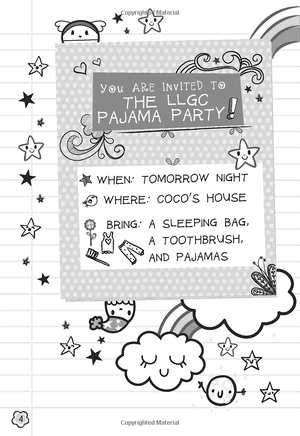 Copyrighted Material
YOU ARE INVITED TO
THE LLGC
PAJAMA PARTY!
WHEN: TOMORROW NIGHT
WHERE: COCO'S HOUSE
BRING: A SLEEPING BAG,
A TOOTHBRUSH,
AND PAJAMAS
4
Copyrighted Material